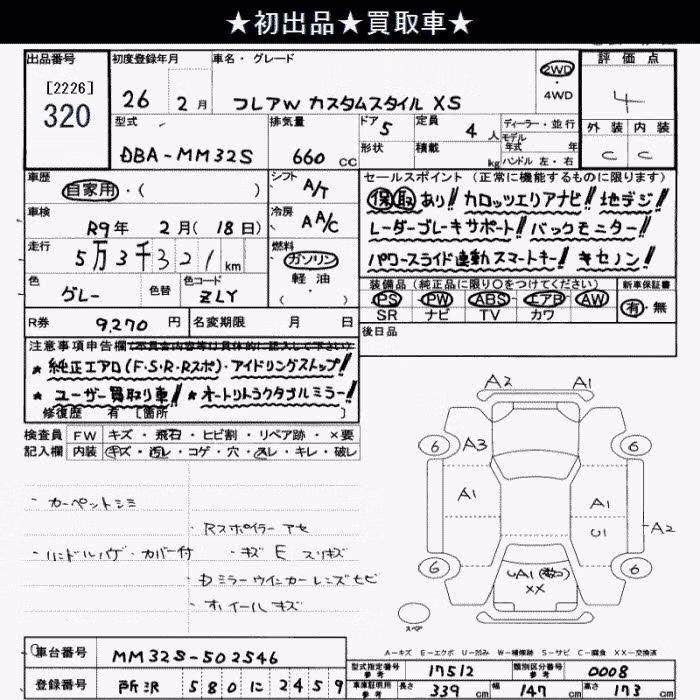 ★初出品★買取車★
出品番号
[2226]
320
初度登録年月
26 2月
車名・グレード
フレアW カスタムスタイル XS
2WD
・
4WD
評価点
4
型式
DBA-MM32S
排気量
660 CC
ドア 5
形状
定員 4 人
積載 kg
ディーラー・並行
モデル
年式 年
ハンドル 左・右
外装 内装
C C
車歴
自家用・( )
シフト
A/T
セールスポイント(正常に機能するものに限ります)
保取あり!! カロッツエリアナビ!! 地デジ!!
レーダーブレーキサポート!! バックモニター!!
パワースライド連動スマートキー! キセノン!
車検
R9年 2月(18日)
冷房
AA/C
走行
5万3千321km
燃料
ガソリン
・
軽油
( )
色
グレー
色替
色コード
ZLY
装備品(純正品に限り〇をつけてください)
PS PW ABS エアB AW
SR ナビ TV カワ
新車保証書
有・無
R券 9,270 円
名変期限 月 日
後日品
注意事項申告欄(不具合内容等は具体的に記入して下さい)
★純正エアロ(F・S・R・Rスポ)・アイドリングストップ!!
★ユーザー買取り車!! ★オートリトラクタブルミラー!
修復歴 有 [箇所 ]
検査員 FW キズ・飛石・ヒビ割・リペア跡・×要
記入欄 内装 キズ・汚レ・コゲ・穴・スレ・キレ・破レ
・カーペットシミ
Rスポイラー アセ
・ハンドルハゲ・カバー付 ・キズ E スリキズ
・ミラーウインカーレンズヒビ
・ホイールキズ
A2 A1
6 A3 6
A1 A1
U1 A2
6 6
UA1
XX
スペア
A-キズ E-エクボ U-凹み W-補修跡 S-サビ C-腐食 XX-交換済
車台番号 MM32S-502546
登録番号 所沢 580 に 2459
型式指定番号
参考
17512
類別区分番号
参考
0008
車庫証明用
参考
長さ 339 cm 幅 147 cm 高さ 173 cm